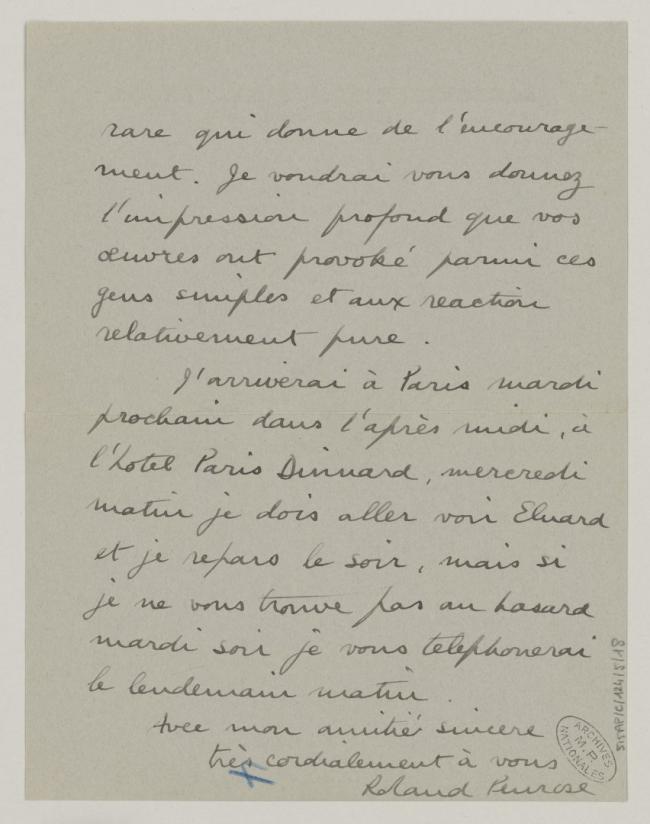 rare qui donne de l'encourage-
ment. Je voudrai vous donnez
l'impression profond que vos
œuvres ont provoké parmi ces
gens simples et aux reaction
relativement pure.
J'arriverai à Paris mardi
prochain dans l'après midi, à
l'hotel Paris Dinnard, mercredi
matin je dois aller voir Eluard
et je repars le soir, mais si
je ne vous trouve pas au hasard
mardi soir je vous telephonerai
le lendemain matin.
Avec mon amitié sincere
très cordialement à vous
Roland Penrose
ARCHIVES
M.P.
NATIONALES
515AP/C/124/5/18